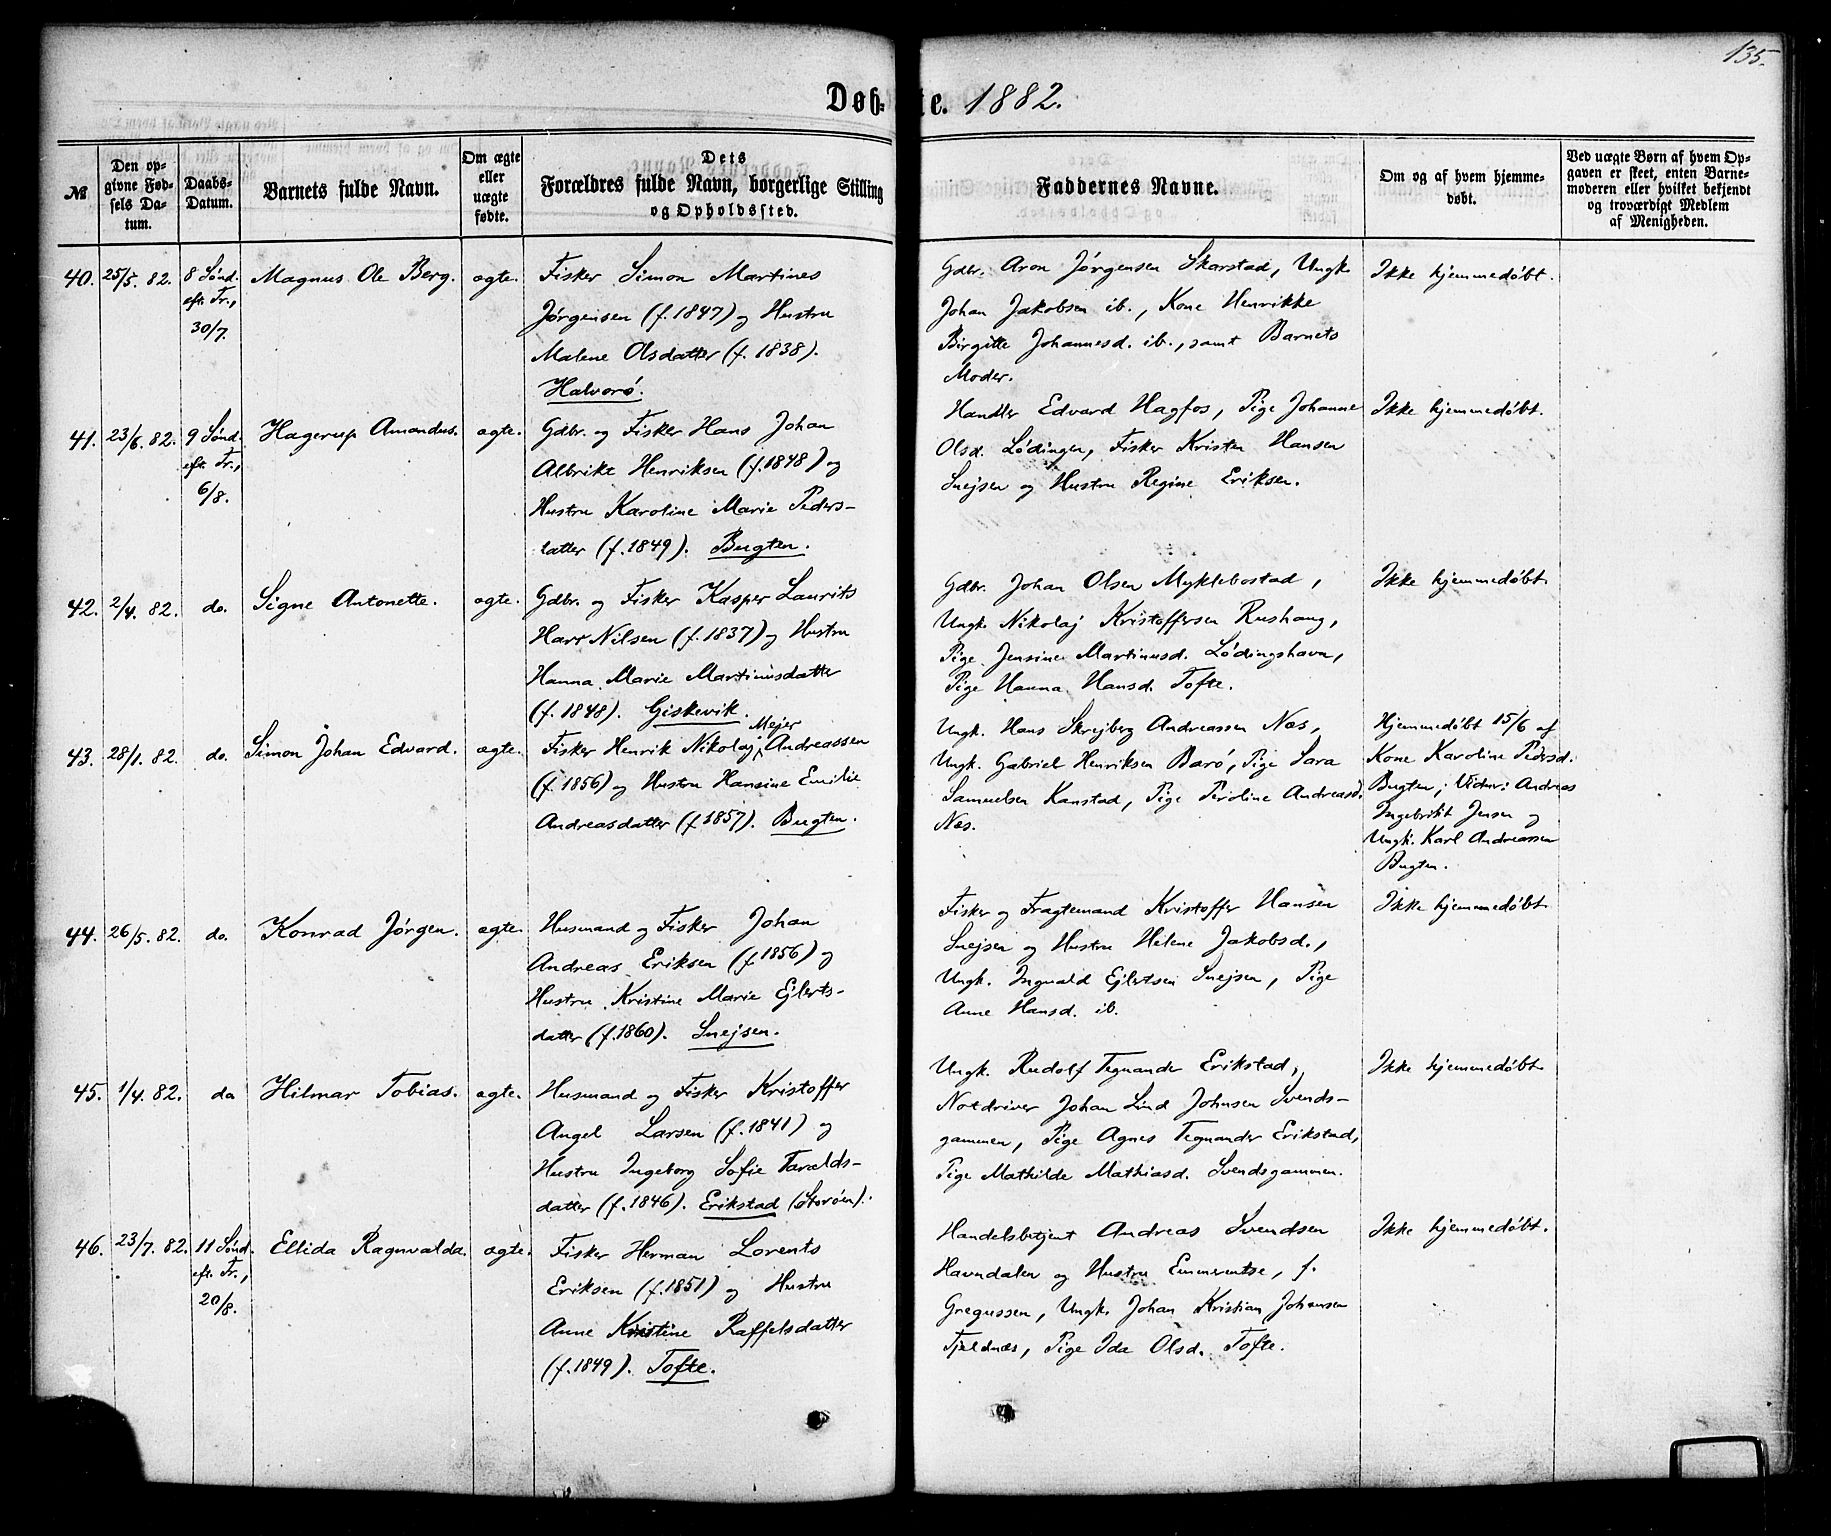 135.
Døb-te. 1882.
№
Den op-
givne Fød-
sels Da-
tum.
Daabs-
Datum.
Barnets fulde Navn.
Om ægte
eller
uægte
fødte.
Dets
Forældres fulde Navn, borgerlige Stilling
og Opholdssted.
Faddernes Navne.
Om og af hvem hjemme-
døbt.
Ved uægte Børn af hvem Op-
gaven er skeet, enten Barne-
moderen eller hvilket bekjendt
og troværdigt Medlem
af Menigheden.
40.
25/5. 82.
8 Sønd.
eft. Tr.,
30/7.
Magnus Ole Berg.
ægte.
Fisker Simon Martines
Jørgensen (f. 1847) og Hustru
Malene Olsdatter (f. 1838).
Halvorø.
Gdbr. Aron Jørgensen Skarstad, Ungk.
Johan Jakobsen ib., Kone Henrikke
Birgitte Johannesd. ib., samt Barnets
Moder.
Ikke hjemmedøbt.
41.
23/6. 82.
9 Sønd.
eft. Tr.,
6/8.
Hagerup Amandus.
ægte.
Gdbr. og Fisker Hans Johan
Albrikt Henriksen (f. 1848) og
Hustru Karoline Marie Peders-
datter (f. 1849). Bugten.
Handler Edvard Hagfos, Pige Johanne
Olsd. Lødingen, Fisker Kristen Hansen
Snejsen og Hustru Regine Eriksen.
Ikke hjemmedøbt.
42.
2/4. 82.
do.
Signe Antonette.
ægte.
Gdbr. og Fisker Kasper Laurits
Harr Nilsen (f. 1837) og Hustru
Hanna Marie Martinusdatter
(f. 1848). Giskevik.
Gdbr. Johan Olsen Myklebostad,
Ungk. Nikolaj Kristoffersen Rushaug,
Pige Jensine Martinusd. Lødingshavn,
Pige Hanna Hansd. Tofte.
Ikke hjemmedøbt.
43.
28/1. 82.
do.
Simon Johan Edvard.
ægte.
Mejer
Fisker Henrik Nikolaj Andreassen
(f. 1856) og Hustru Hansine Emilie
Andreasdatter (f. 1857). Bugten.
Ungk. Hans Skrejberg Andreassen Næs,
Ungk. Gabriel Henriksen Barø, Pige Sara
Samuelsen Kanstad, Pige Peroline Andreasd.
Næs.
Hjemmedøbt 15/6 af
Kone Karoline Pedersd.
Bugten; Vidner: Andreas
Ingebrikt Jensen og
Ungk. Karl Andreassen
Bugten.
44.
26/5. 82.
do.
Konrad Jørgen.
ægte.
Husmand og Fisker Johan
Andreas Eriksen (f. 1856) og
Hustru Kristine Marie Ejlerts-
datter (f. 1860). Snejsen.
Fisker og Fragtemand Kristoffer Hansen
Snejsen og Hustru Helene Jakobsd.,
Ungk. Ingvald Ejlertsen Snejsen, Pige
Anne Hansd. ib.
Ikke hjemmedøbt.
45.
1/4. 82.
do
Hilmar Tobias.
ægte.
Husmand og Fisker Kristoffer
Angel Larsen (f. 1841) og
Hustru Ingeborg Sofie Taralds-
datter (f. 1846). Erikstad (Storøen).
Ungk. Rudolf Tegnander Erikstad,
Notdriver Johan Lind Johnsen Svends-
gammen, Pige Agnes Tegnander Erikstad,
Pige Mathilde Mathiasd. Svendsgammen.
Ikke hjemmedøbt.
46.
23/7. 82.
11 Sønd.
eft. Tr.,
20/8.
Ellida Ragnvalda.
ægte.
Fisker Herman Lorents
Eriksen (f. 1851) og Hustru
Anne Kristine Raffelsdatter
(f. 1849). Tofte.
Handelsbetjent Andreas Svendsen
Havndalen og Hustru Emmerentse, f.
Gregussen, Ungk. Johan Kristian Johansen
Fjeldnæs, Pige Ida Olsd. Tofte.
Ikke hjemmedøbt.